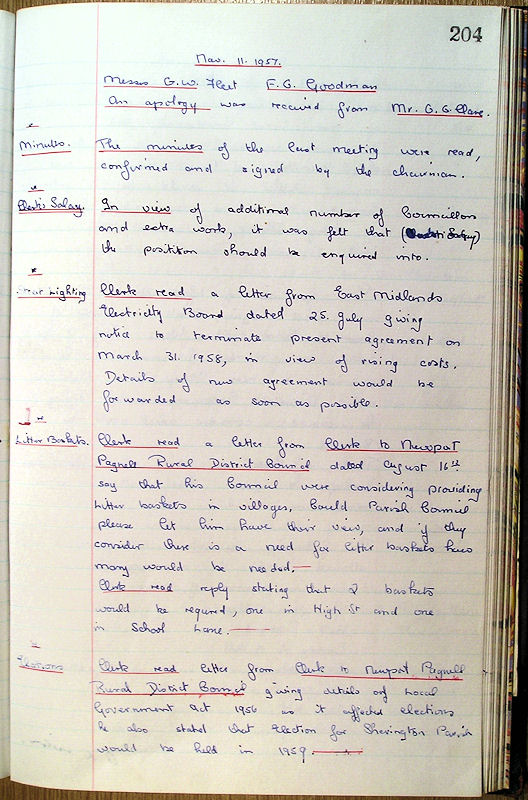 204
Nov. 11. 1957.
Messrs G.W. Fleet F.G. Goodman
An apology was received from Mr. G.G. Clare.
Minutes. The minutes of the last meeting were read,
confirmed and signed by the chairman.
Clerk's Salary. In view of additional number of Councillors
and extra work, it was felt that (Clerk's Salary)
the position should be enquired into.
Street Lighting Clerk read a letter from East Midlands
Electricity Board dated 25. July giving
notice to terminate present agreement on
March 31. 1958, in view of rising costs.
Details of new agreement would be
forwarded as soon as possible.
Litter Baskets. Clerk read a letter from Clerk to Newport
Pagnell Rural District Council dated August 16th
say that his Council were considering providing
Litter baskets in villages, Could Parish Council
please let him have their view, and if they
consider there is a need for litter baskets how
many would be needed.
Clerk read reply stating that 2 baskets
would be required, one in High St and one
in School Lane.
Elections Clerk read letter from Clerk to Newport Pagnell
Rural District Council giving details of Local
Government Act 1956 as it affected elections
he also stated that Election for Sherington Parish
would be held in 1959.